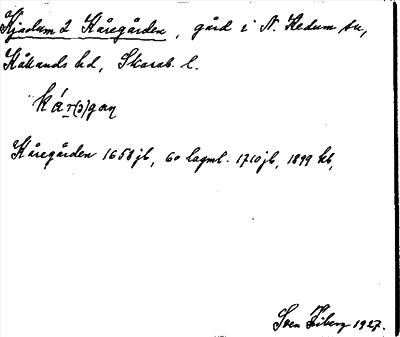 Kjaolum 2 Kåregården, gård i N. Kedum sn,
Kållands hd, Skarab. l.
ká̱r(ə)gaɳ
Kåregården 1658 jb, 60 lagml. 1710 jb, 1899 kb,
Sven Ziberg 1927.